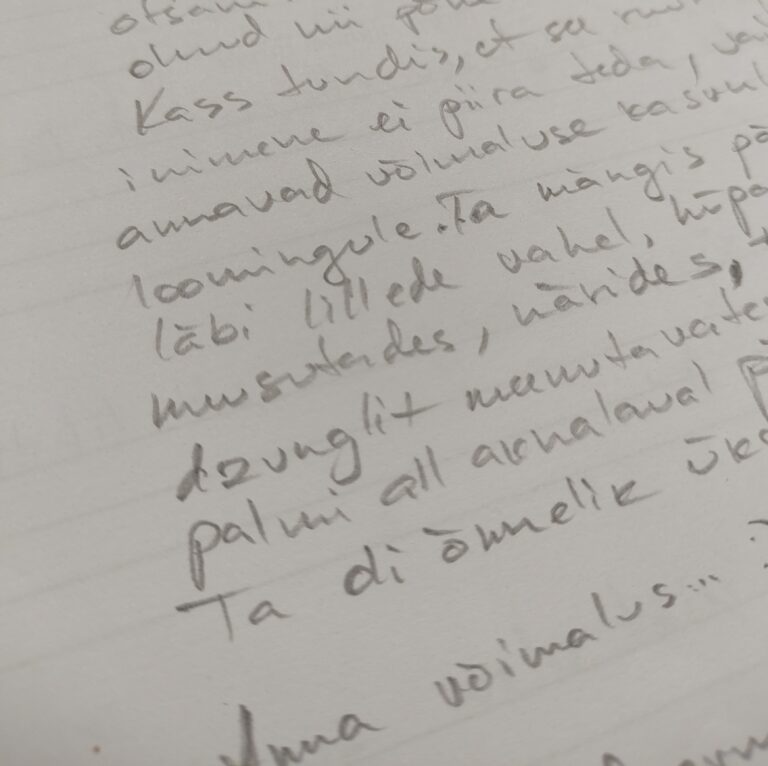 olnud nii
Kass tundis, et sa
inimene ei piira teda,
annavad võimaluse kasvul
loomingule. Ta mängis
läbi lillede vahel,
musutades, närides,
dzunglit meenutavate
palmi all aknalaual
Ta oli õnnelik
Anna võimalus...